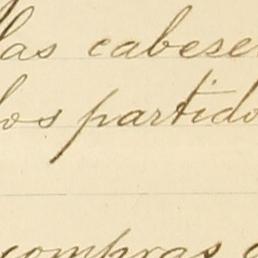 las cabese
los partido
compras